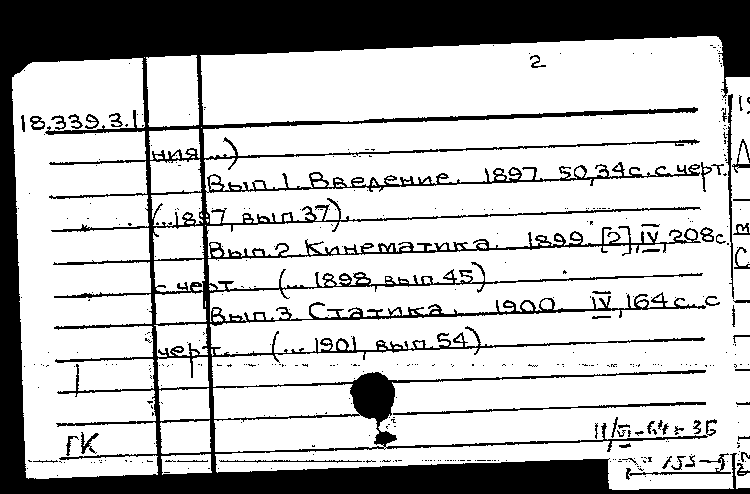 2
18.339.3.1
ния ...)
Вып.1. Введение. 1897. 50,34с. с черт.
(...1897, вып.37).
Вып.2 Кинематика. 1899. [2], IV, 208с.
с черт. (... 1898, вып.45)
Вып.3. Статика. 1900. IV, 164с. с
черт. (... 1901, вып.54)
ГК